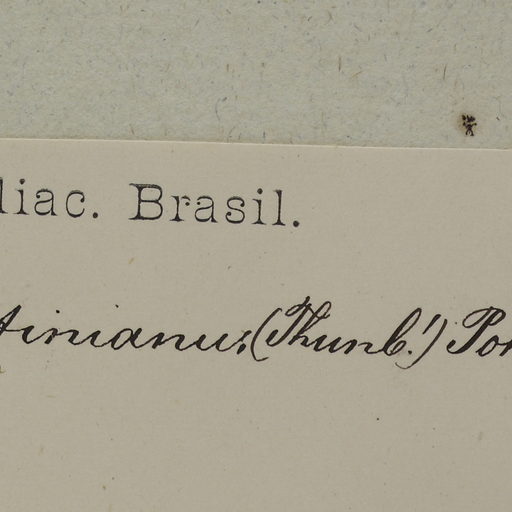 liac. Brasil.
tinianus, (Thunb.!) Pon